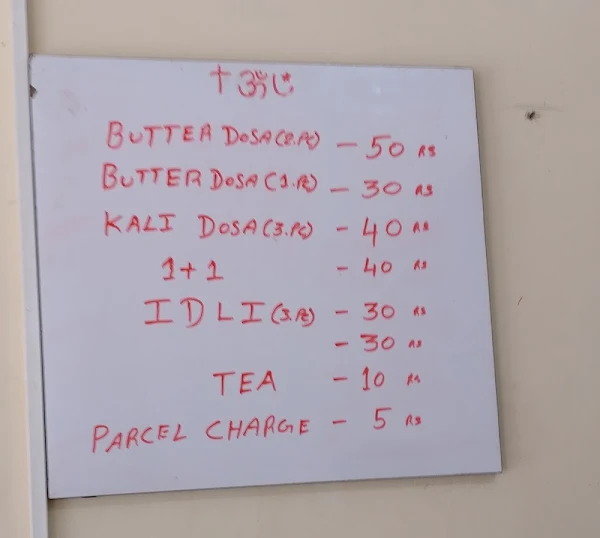 ✝ ॐ ☪
BUTTER DOSA (2.Pc) - 50 RS
BUTTER DOSA (1.Pc) - 30 RS
KALI DOSA (3.Pc) - 40 RS
1+1 - 40 RS
IDLI (3.Pc) - 30 RS
- 30 RS
TEA - 10 RS
PARCEL CHARGE - 5 RS